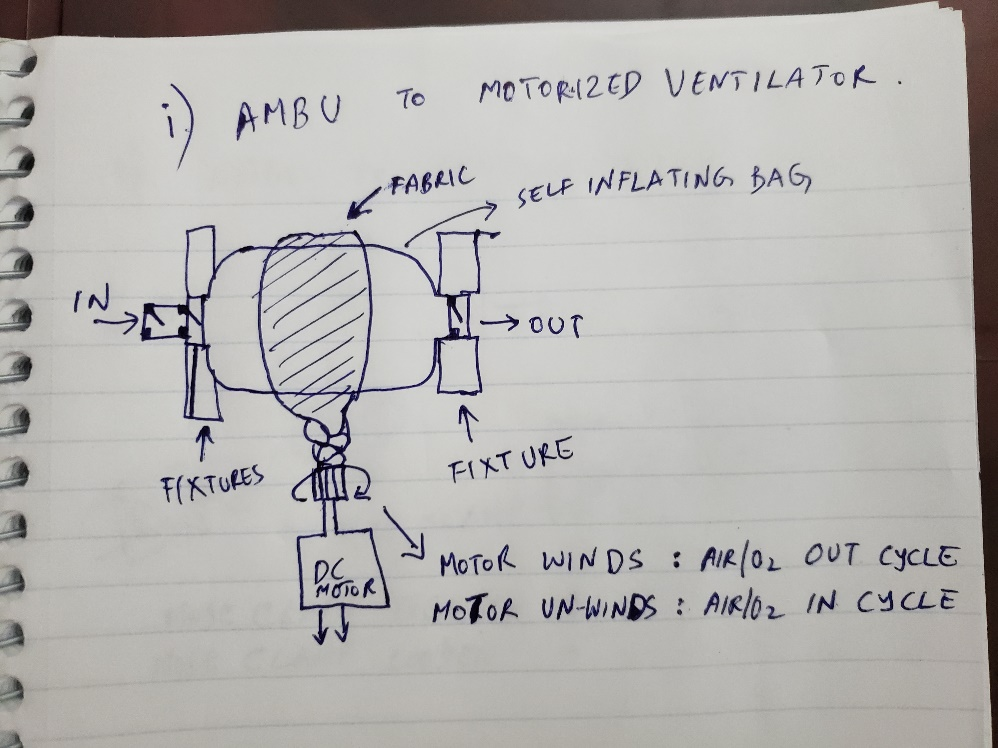 i) AMBU TO MOTORIZED VENTILATOR.
FABRIC
SELF INFLATING BAG
IN
OUT
FIXTURES
FIXTURE
DC
MOTOR
MOTOR WINDS : AIR/O2 OUT CYCLE
MOTOR UN-WINDS : AIR/O2 IN CYCLE